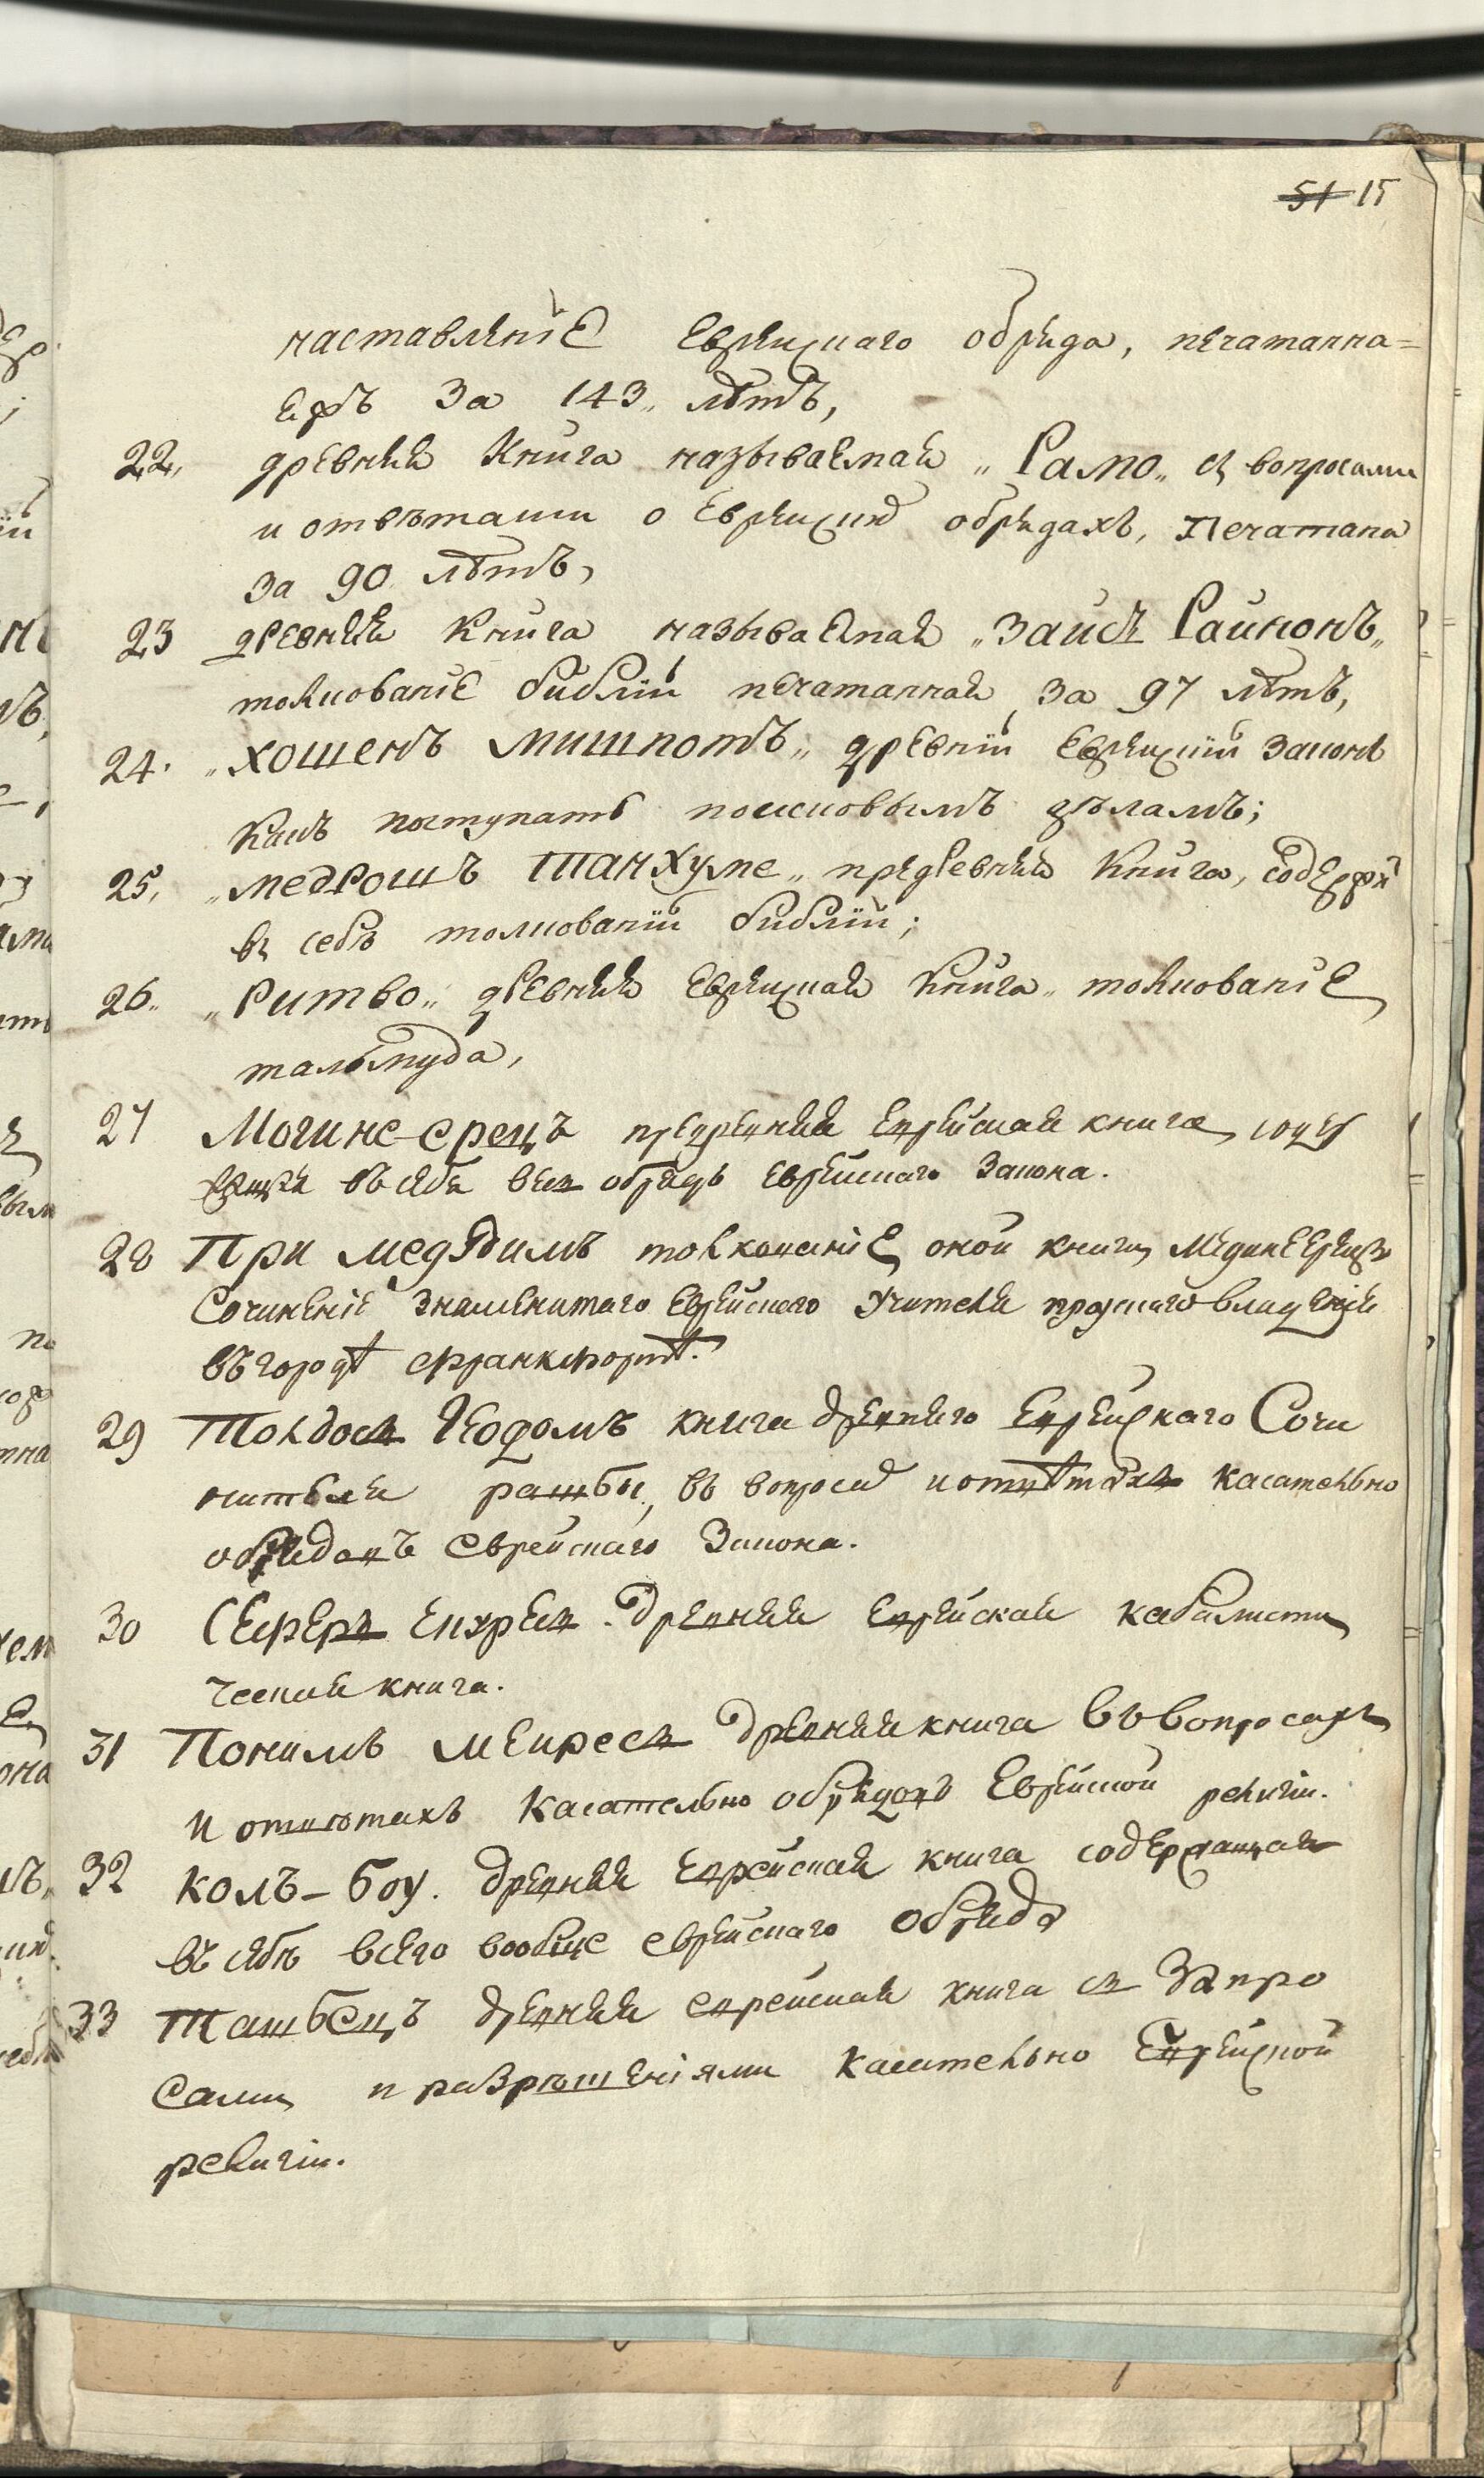 51 15
наставленiе Еврейскаго обряда, печатанна=
ежъ За 143. лѣтъ,
22, древняя Книга называемая „Рамо„ съ вопросами
и отвѣтами о Еврейских обрядахъ, Печатана
За 90 лѣтъ,
23 древняя Книга называемая „Заисъ Райнонъ„
толкованiе библiи печатанная За 97 лѣтъ,
24. „Хошенъ Мишпотъ„ древнiй Еврейскiй Законъ
Какъ поступать поисковымъ дѣламъ;
25, „Медрошъ Танхуме„ предревняя Книга, содержи
въ себѣ толкованiи библiи;
26.. „Ритво„ древняя Еврейская Книга толкованiе
тальмуда,
27 Могине-Эрецъ предревняя Еврейская книга, содер
жащая въ себѣ весь обрядъ Еврейскаго Закона.
28 При Медрдимъ толкованiе оной книги Медине Ерецъ
Сочиненiе знаменитаго Еврейскаго Учителя прускаго владенiя
въ городѣ Франкфортѣ.
29 Толдосъ Иодомъ книга древняго Еврейскаго Сочи
нителя рашбы, въ вопросах и отвѣтахъ касательно
обрядовъ Еврейскаго Закона.
30 Сеферъ Ецересъ. Древняя Еврейская кабалисти
ческая книга.
31 Понимъ Меиресъ Древняя книга въ вопросахъ
и отвѣтахъ касательно обрядовъ Еврейской религiи.
32 Колъ-боу. Древняя Еврейская книга содержащая
въ себѣ всего вообще Еврейскаго Обряда
33 Ташбецъ Древняя Еврейская книга съ Запро
сами и разрѣшенiями касательно Еврейской
религiи.